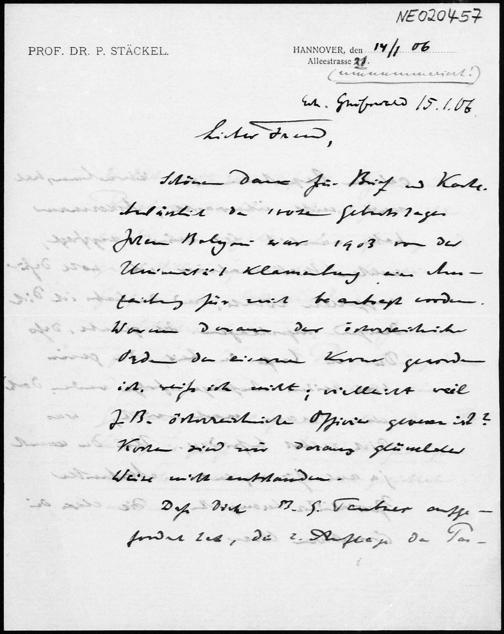 NE020457
PROF. DR. P. STÄCKEL.
HANNOVER, den 14/1 06
Alleestrasse 21.
(umnummeriert!)
Erh. Greifswald 15.1.06
Lieber Freund,
Schönen Dank für Brief und Karte.
Anlässlich des 100ten Geburtstages
Johann Bolyai war 1903 von der
Universität Klausenburg eine Aus-
zeichnung für mich beantragt worden.
Warum daraus der österreichische
Orden der eisernen Krone geworden
ist, weiss ich nicht; vielleicht weil
J. B. österreichischer Offizier gewesen ist?
Kosten sind mir daraus glücklicher
Weise nicht entstanden.
Dass Dich B. G. Teubner aufge-
fordert hat, die 2. Auflage der